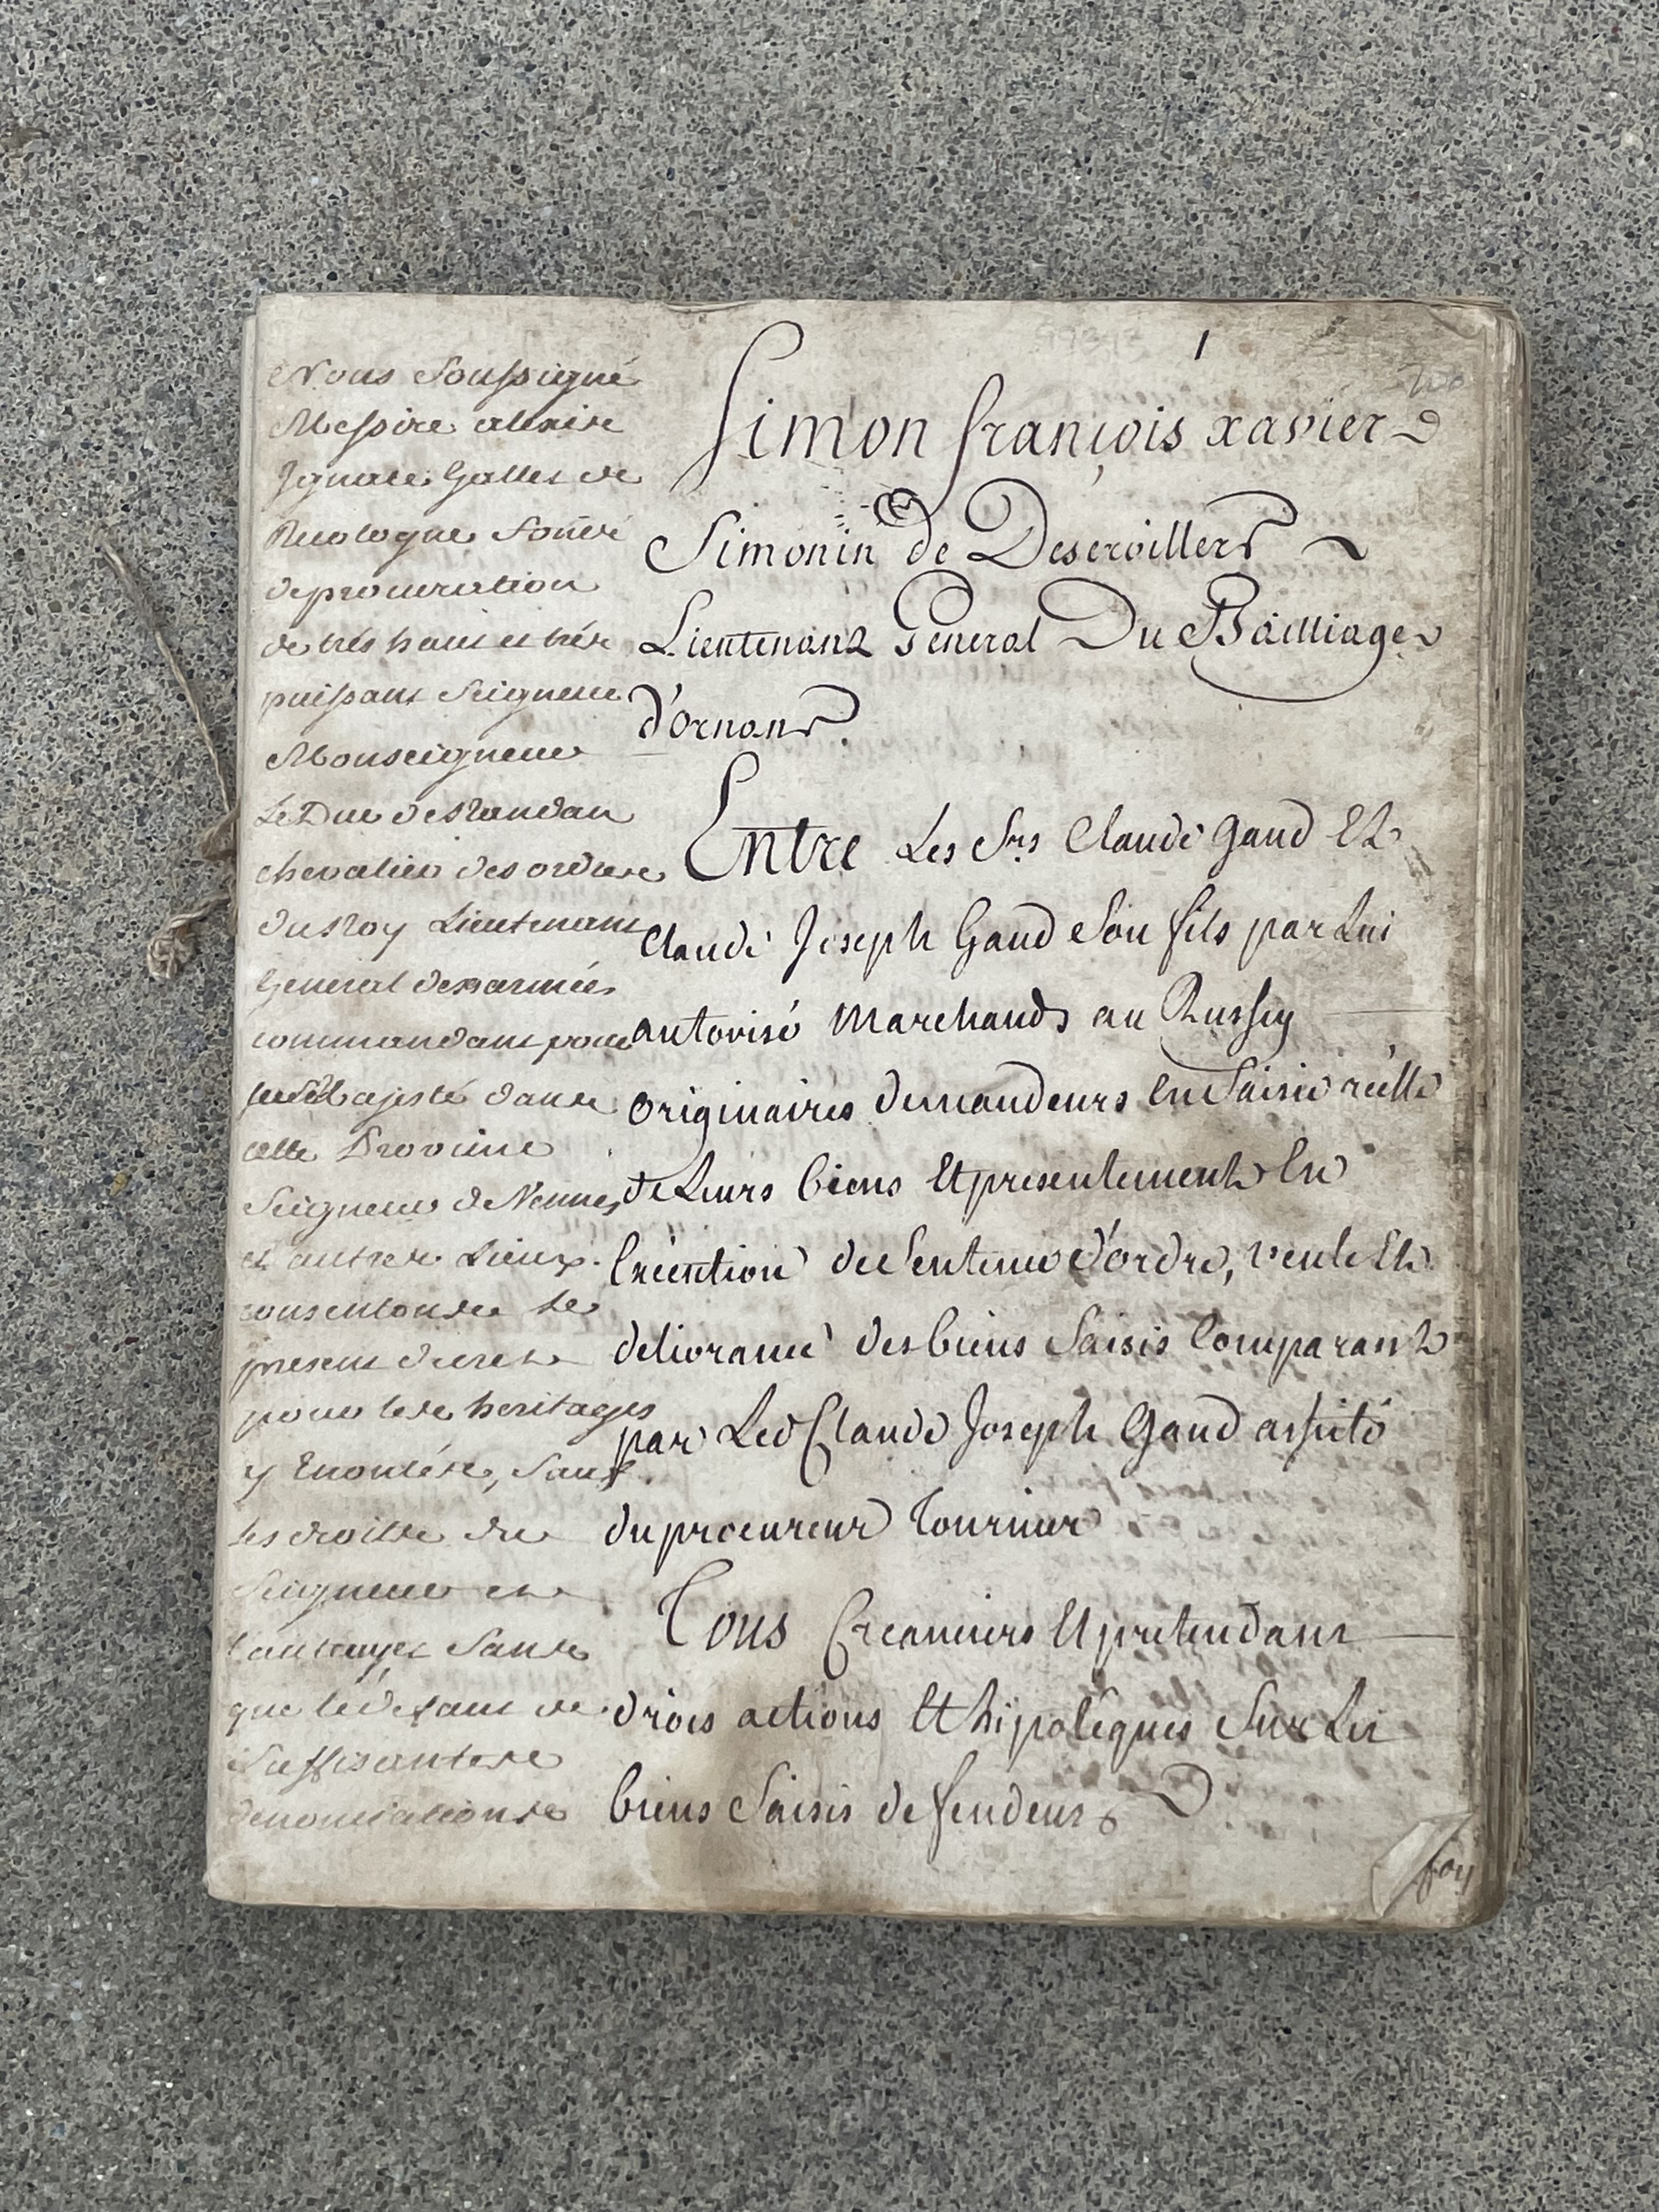 1
Nous Soussigné
Messire alexis
Ignace Gallet de
fondé
de procuration
de tres haut et tres
puissant Seigneur
Monseigneur
Le Duc de Randan
chevalier des ordres
du Roy Lieutenant
General des armées
commandant pour
sa Majesté dans
cette Province
Seigneur de Vennes
et autres Lieux
consentons le
present decret
pour les heritages
y Enoncés, Sauf
les droits du
Seigneur et
Sans
que le defaut de
Suffisantes
denonciations
Simon françois xavier
Simonin de Deservillers
Lieutenant General Du Bailliage
d'Ornans
Entre Les Srs Claude Gaud Et
Claude Joseph Gaud Son fils par Lui
autorisé Marchands au Russey
originaires demandeurs En Saisie réelle
de Leurs biens Et presentement En
Execution de Sentence d'ordre, vente Et
delivrance des biens Saisis Comparant
par Led Claude Joseph Gaud assisté
du procureur Tournier
Tous Creanciers Et pretendans
drois actions Et hipoteques Sur Les
biens Saisis defendeurs